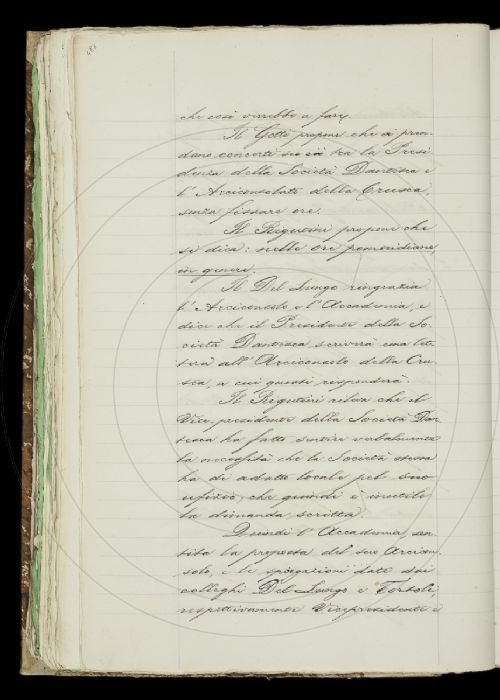 che così verrebbe a fare.
Il Gotti propone che si pren-
dano concerti su ciò tra la Presi
denza della Società Dantesca e
l'Arciconsolato della Crusca,
senza fissare ore.
Il Rigutini propone che
si dica: nelle ore pomeridiane,
in genere.
Il Del Lungo ringrazia
l'Arciconsolo e l'Accademia, e
dice che il Presidente della So-
cietà Dantesca scriverà una let-
tera all'Arciconsolo della Cru-
sca, a cui questi risponderà.
Il Rigutini rileva che il
Vice presidente della Società Dan-
tesca ha fatto sentire verbalmente
la necessità che la Società stessa
ha di adatto locale pel suo
ufizio, che quindi è inutile
la dimanda scritta.
Quindi l'Accademia, sen
tita la proposta del suo Arcicon-
solo, e le spiegazioni date dai
colleghi Del Lungo e Tortoli,
respettivamente Vicepresidente e